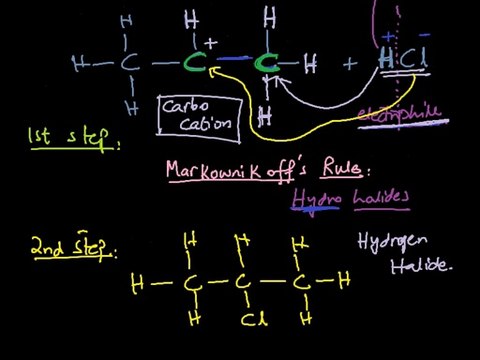 H H H + -
H - C - C + - C - H + HCl
H H
Carbo
Cation
electrophile
1st step:
Markownikoff's Rule:
Hydro halides
2nd step:
Hydrogen
Halide.
H H H
H - C - C - C - H
H Cl H